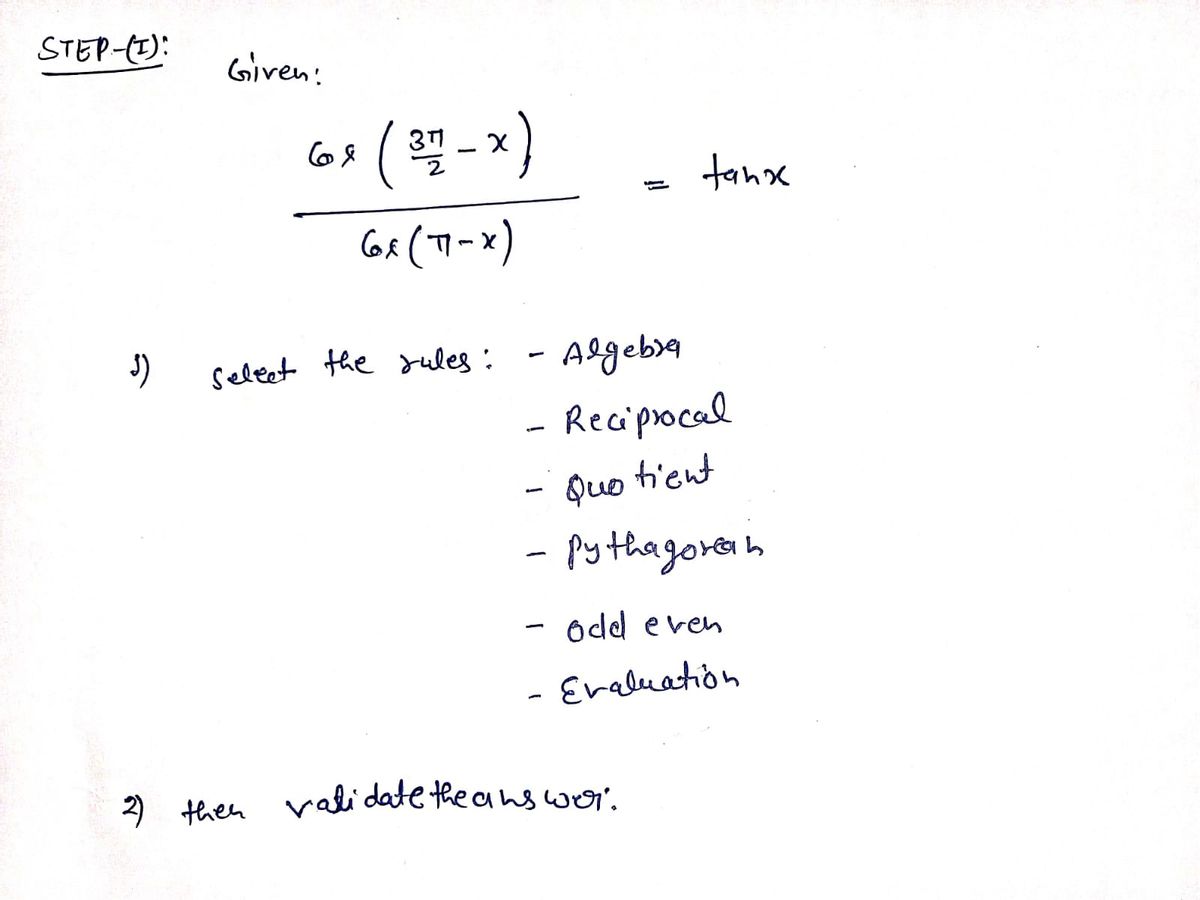 STEP-(I):
Given:
Cos ( 3π/2 - x )
= tanx
Cos (π - x)
1) select the rules: - Algebra
- Reciprocal
- Quotient
- Pythagorean
- odd even
- Evaluation
2) then validate the answer.